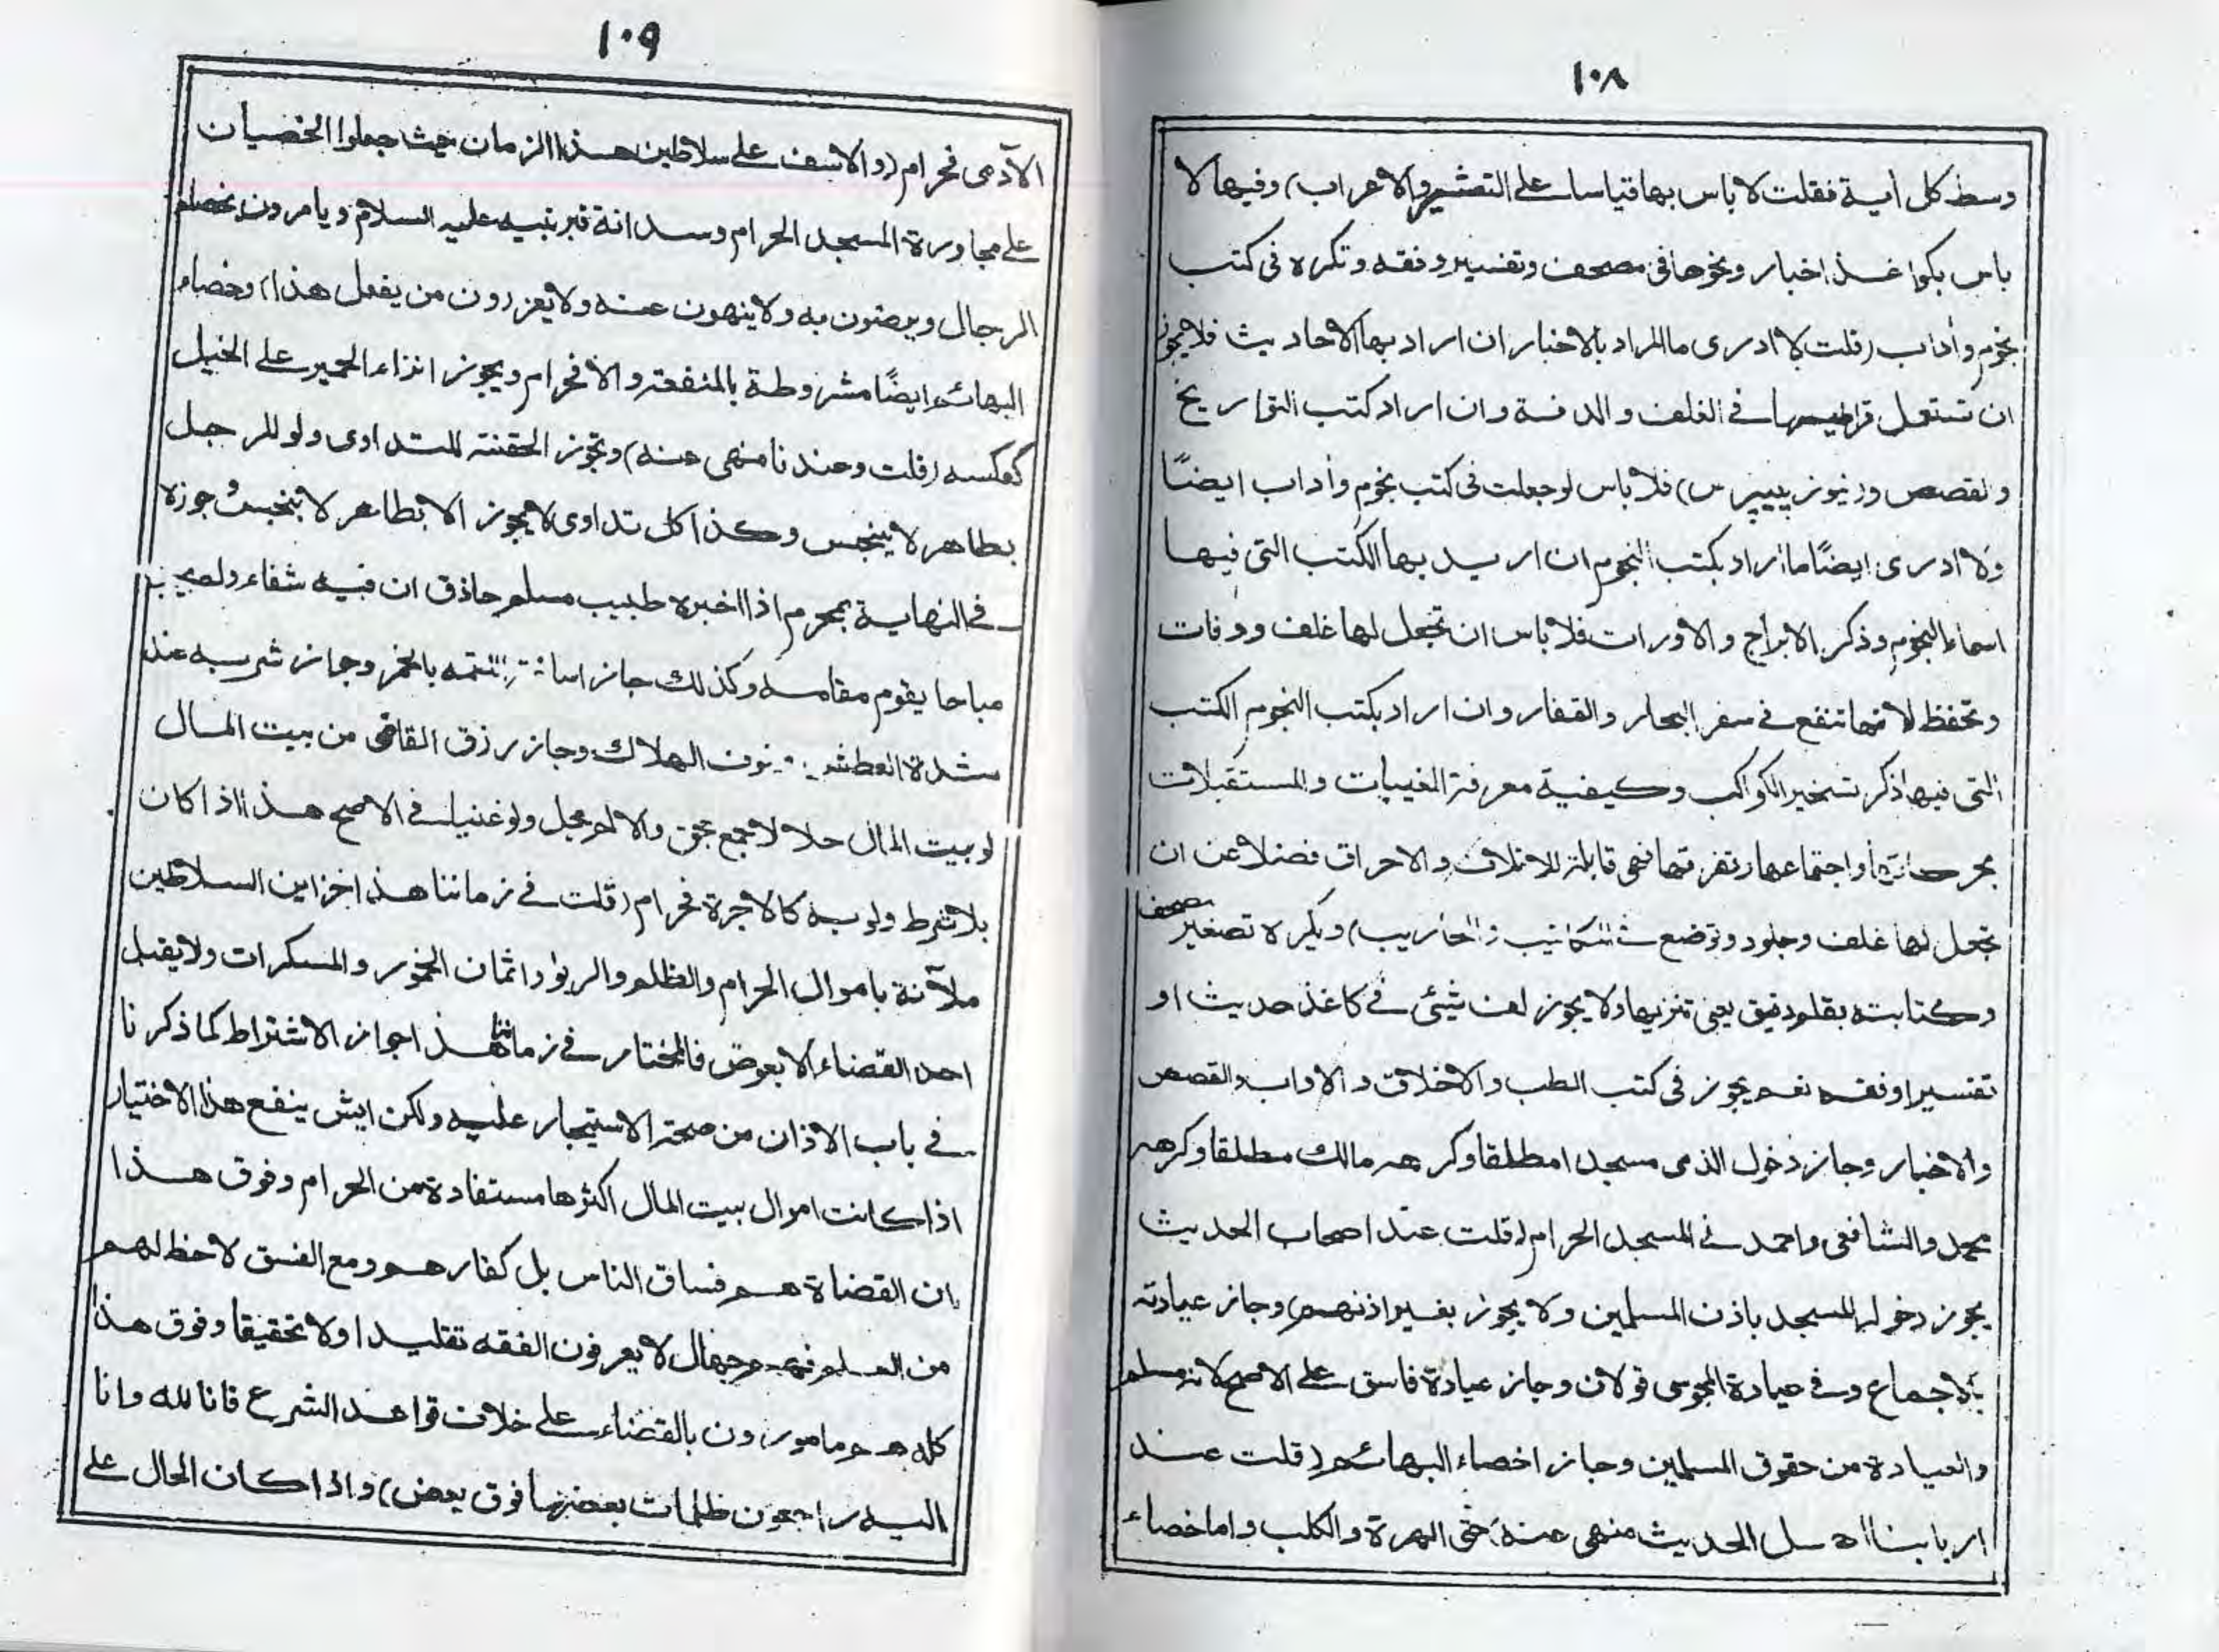 ١٠٨
وسط كل آية فقلت لا باس بها قياسا على التعشير والاعراب) وفيها لا
باس بكواغذ اخبار ونحوها فى مصحف وتفسير وفقه وتكره فى كتب
نجوم وآداب (قلت لا ادرى ما المراد بالاخبار ان اراد بها الاحاديث فلا يجوز
ان تستعمل قراطيسها فى الغلف والدفة وان اراد كتب التواريخ
والقصص و(نيوز پيپرس) فلا باس لو جعلت فى كتب نجوم وآداب ايضًا
ولا ادرى ايضًا ما اراد بكتب النجوم ان اريد بها الكتب التى فيها
اسماء النجوم وذكر الابراج والاورات فلا باس ان تجعل لها غلف ودفات
وتحفظ لانها تنفع فى سفر البحار والقفار وان اراد بكتب النجوم الكتب
التى فيها ذكر تسخير الكواكب وكيفية معرفة المغيبات والمستقبلات
بحركاتها واجتماعها وتفرقها فهى قابلة للاتلاف والاحراق فضلا عن ان
تجعل لها غلف وجلود وتوضع فى المكاتيب والمحاريب) ويكره تصغير مصحف
وكتابته بقلم دقيق يعنى تنزيها ولا يجوز لف شيئى فى كاغذ حديث او
تفسير او فقه نعم يجوز فى كتب الطب والاخلاق والاداب والقصص
والاخبار وجاز دخول الذمى مسجدا مطلقا وكرهه مالك مطلقا وكرهه
محمد والشافعى واحمد فى المسجد الحرام (قلت عند اصحاب الحديث
يجوز دخوله المسجد باذن المسلمين ولا يجوز بغير اذنهم) وجاز عيادته
بالاجماع وفى عيادة المجوسى قولان وجاز عيادة فاسق على الاصح لانه مسلم
والعيادة من حقوق المسلمين وجاز اخصاء البهائم (قلت عند
اربابنا اهل الحديث منهى عنه) حتى الهرة والكلب واما خصاء
١٠٩
الآدمى فحرام (والاسف على سلاطين هذا الزمان حيث جعلوا الخصيان
على مجاورة المسجد الحرام وسدانة قبر نبيه عليه السلام ويامرون بخصاء
الرجال ويرضون به ولا ينهون عنه ولا يعزرون من يفعل هذا) وخصاء
البهائم ايضًا مشروطة بالمنفعة والا فحرام ويجوز انزاء الحمير على الخيل
كعكسه (قلت وعندنا منهى عنه) وتجوز الحقنة للتداوى ولو للرجل
بطاهر لا ينجس وكذا كل تداوى لا يجوز الا بطاهر لا بنجس وجوزه
فى النهاية بمحرم اذا اخبره طبيب مسلم حاذق ان فيه شفاء ولم يجد
مباحا يقوم مقامه وكذلك جاز اساغة اللقمة بالخمر وجاز شربه عند
شدة العطش خوف الهلاك وجاز رزق القاضى من بيت المال
لو بيت المال حلالا جمع بحق والا لم يحل ولو غنيا فى الاصح هذا اذا كان
بلا شرط ولو به كالاجرة فحرام (قلت فى زماننا هذا خزاين السلاطين
ملآنة باموال الحرام والظلم والربو واثمان الخمور والمسكرات ولا يقبل
احد القضاء الا بعوض فالمختار فى زماننا هذا جواز الاشتراط كما ذكرنا
فى باب الاذان من صحة الاستيجار عليه ولكن ايش ينفع هذا الاختيار
اذا كانت اموال بيت المال اكثرها مستفادة من الحرام وفوق هذا
ان القضاة هم فساق الناس بل كفارهم ومع الفسق لا حظ لهم
من العلم فهم جهال لا يعرفون الفقه تقليدا ولا تحقيقا وفوق هذا
كله هم مامورون بالقضاء على خلاف قواعد الشرع فانا لله وانا
اليه راجعون ظلمات بعضها فوق بعض) واذا كان الحال على